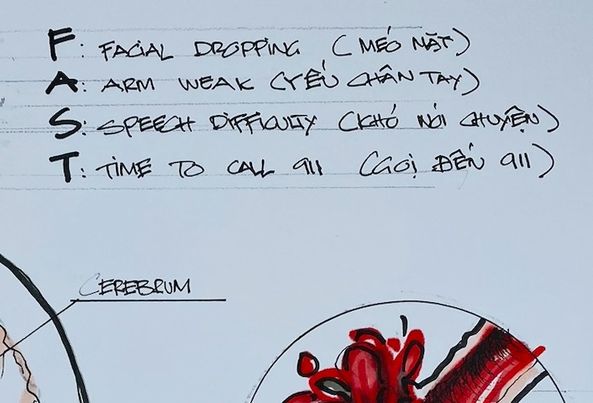 F: FACIAL DROPPING (MÉO MẶT)
A: ARM WEAK (YẾU CHÂN TAY)
S: SPEECH DIFFICULTY (KHÓ NÓI CHUYỆN)
T: TIME TO CALL 911 (GỌI ĐẾN 911)
CEREBRUM